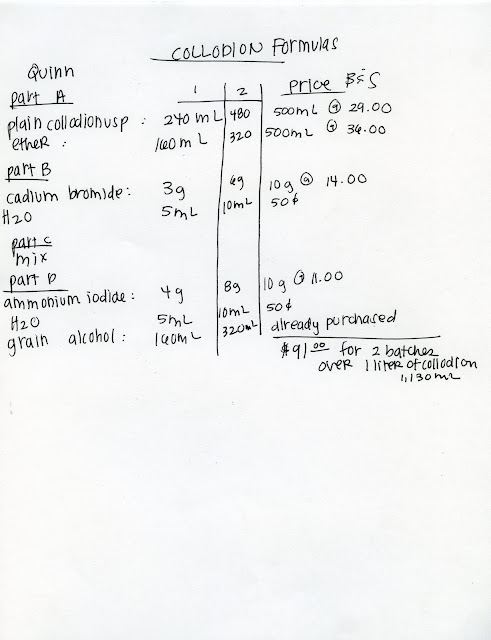 COLLODION Formulas
Quinn
1 2 Price B&S
part A
plain collodion usp : 240 mL 480 500mL @ 29.00
etheR : 160 mL 320 500mL @ 36.00
part B
cadium bromide: 3g 6g 10g @ 14.00
H2O 5mL 10mL 50¢
part C
mix
part D
ammonium iodide: 4g 8g 10g @ 11.00
H2O 5mL 10mL 50¢
grain alcohol: 160mL 320mL already purchased
$91.00 for 2 batches
over 1 liter of collodion
1,130mL